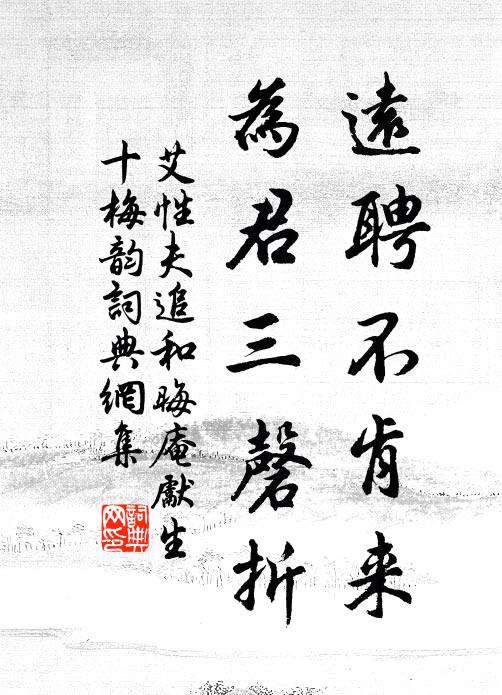 遠聘不肯来
為君三磬折
艾性夫追和晦庵獻生
十梅韵詞典網集
詞典网印